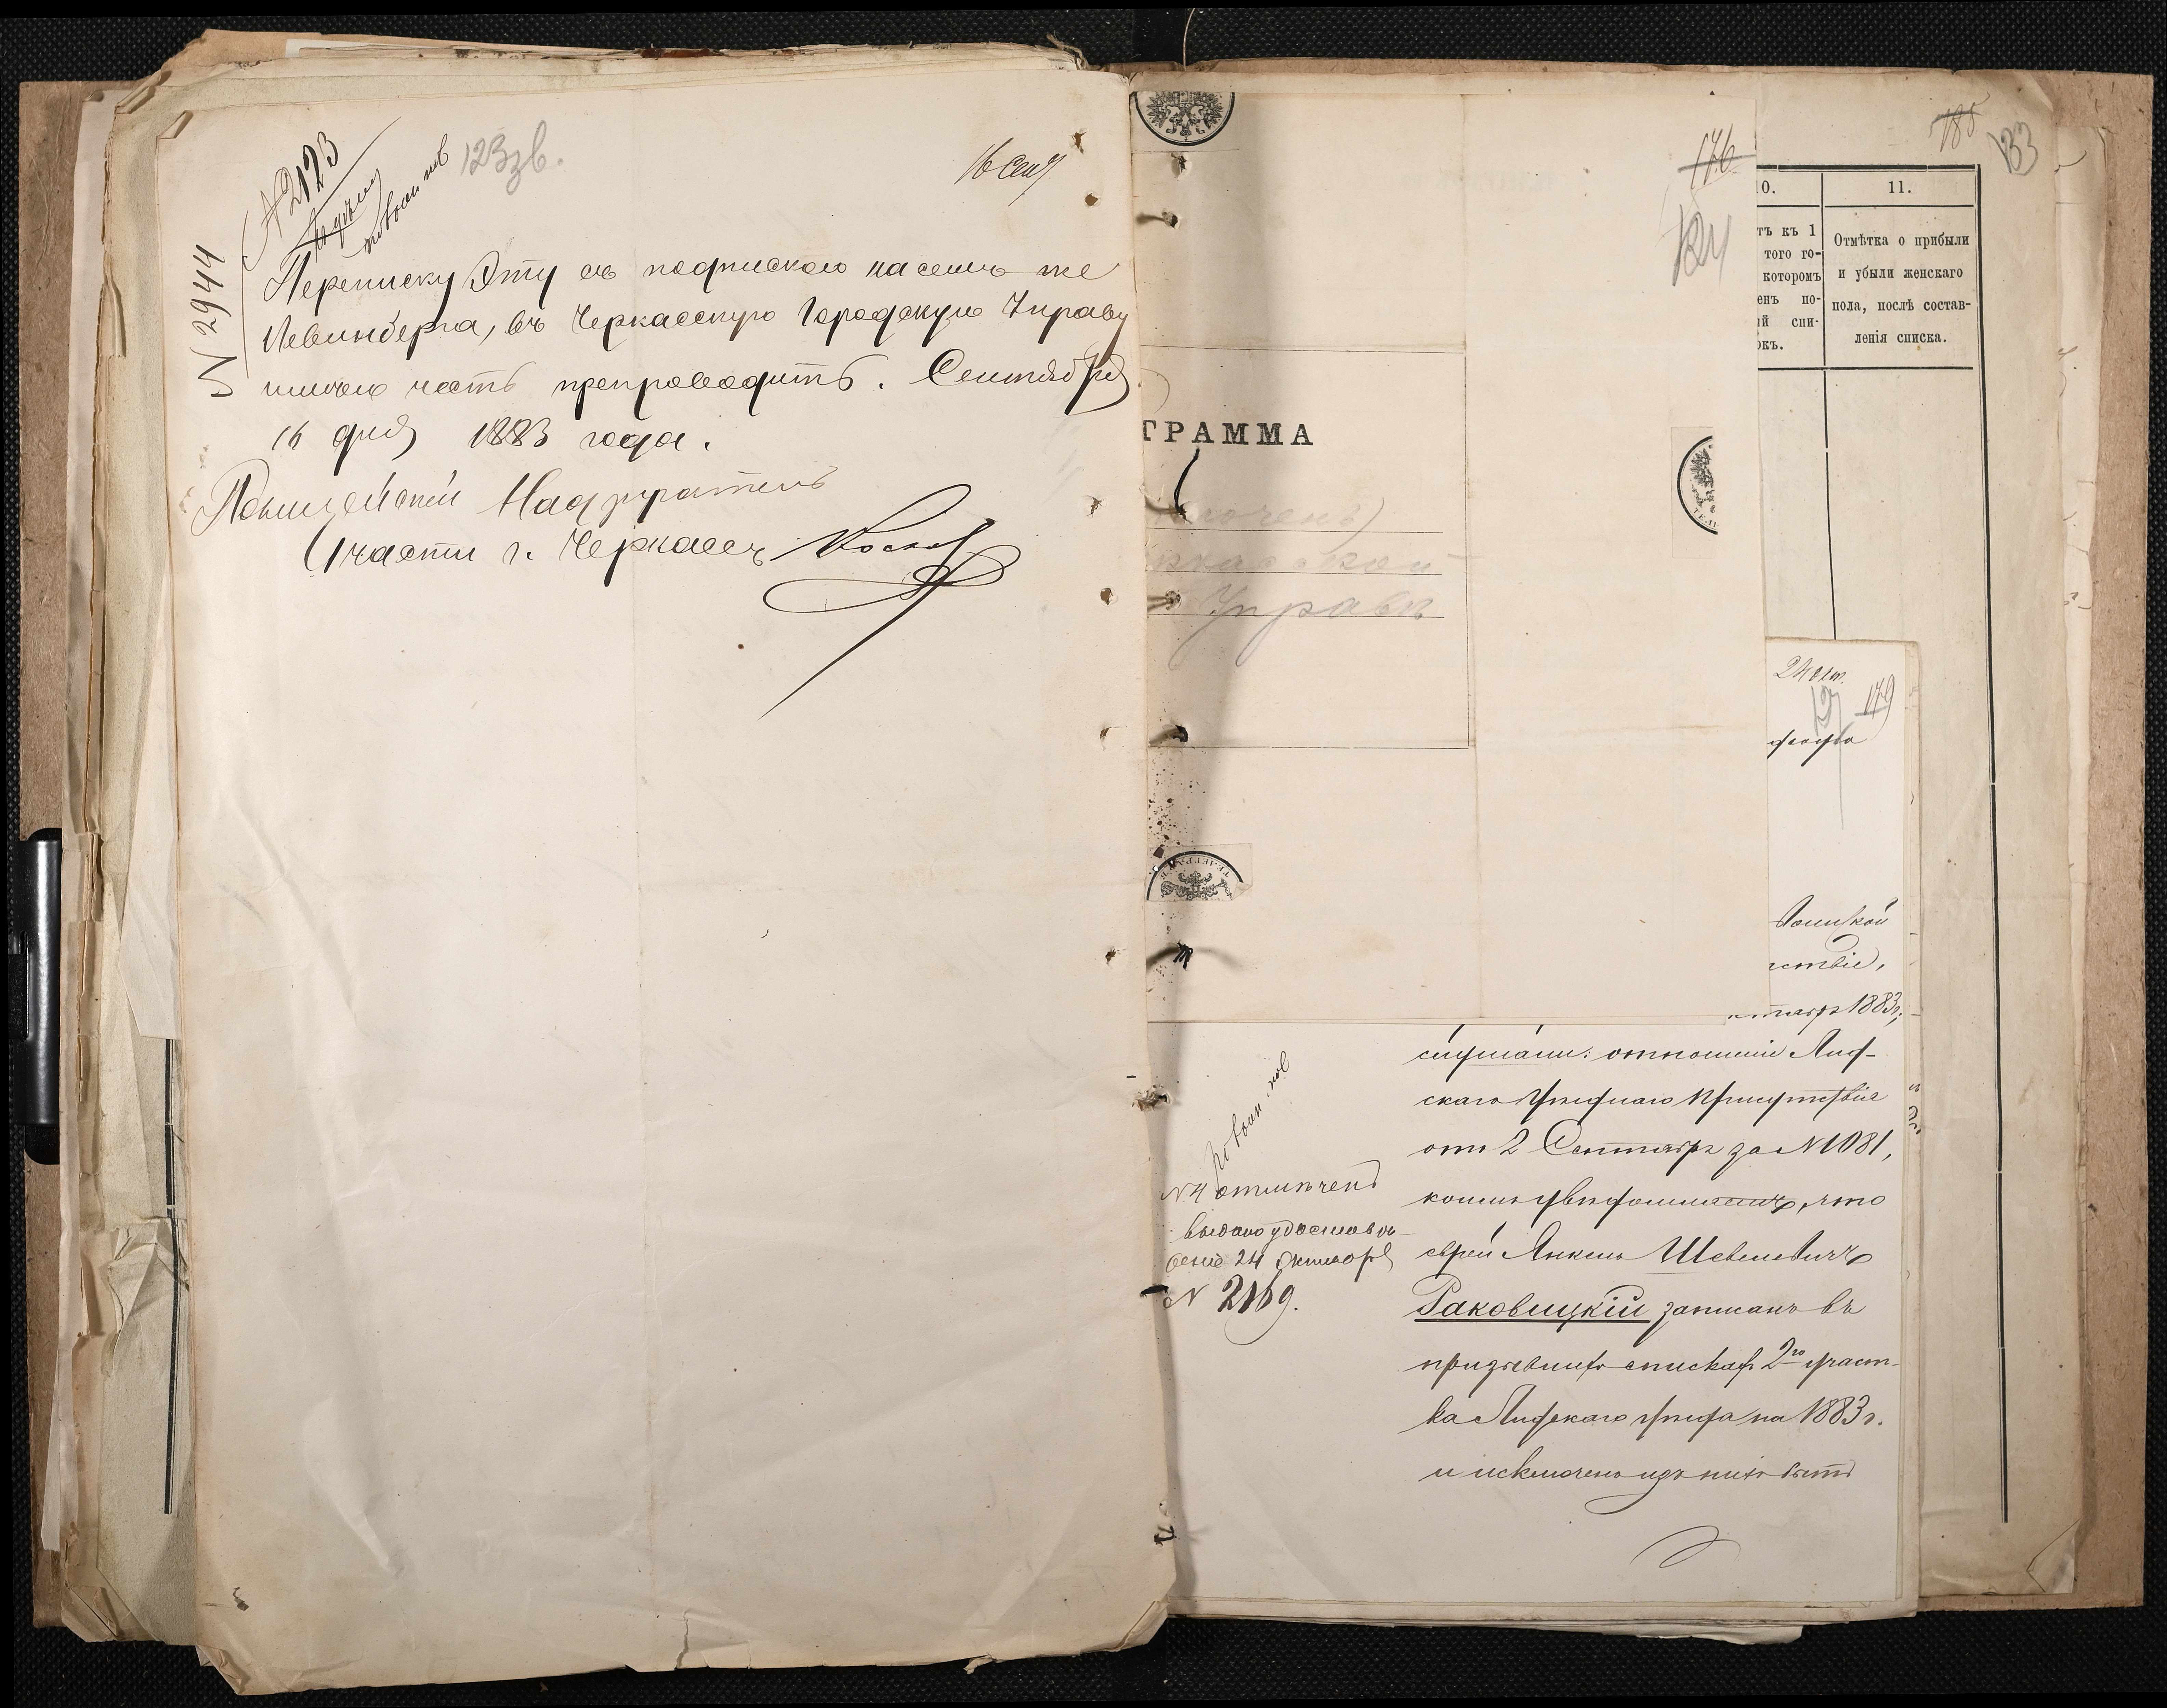 № 2123
по воин пов
123 зв.
16 Сен
№ 2944
Переписку Эту съ подпискою на семъ же
Левинберга, въ Черкасскую Городскую Управу
имѣю честь препроводить. Сентября
16 дня 1883 года.
Полицейскій Надзиратель
1 части г. Черкассъ
176
124
ГРАММА
Управѣ
185
133
10.
11.
тъ къ 1
того го-
которомъ
енъ по-
ій спи-
окъ.
Отмѣтка о прибыли
и убыли женскаго
пола, послѣ состав-
ленія списка.
24 окт.
179
ствіе,
нтября 1883 г.,
слушали: отношеніе Лид-
скаго уѣзднаго Присутствія
отъ 2 Сентября за № 1081,
коимъ увѣдомляетъ, что
еврей Янкель Шевелевичъ
Раковицкій записанъ въ
призывныхъ спискахъ 2го участ-
ка Лидскаго уѣзда на 1883 г.
и исключенъ изъ нихъ быть
по воин пов
№ 4 отмѣченъ
выдано удостовѣ-
реніе 24 октября
№ 2169.